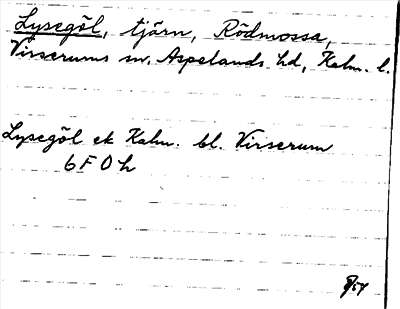 Lysegöl, tjärn, Rödmossa,
Virserums sn, Aspelands hd, Kalm. l.
Lysegöl ek Kalm. bl. Virserum
6F0h